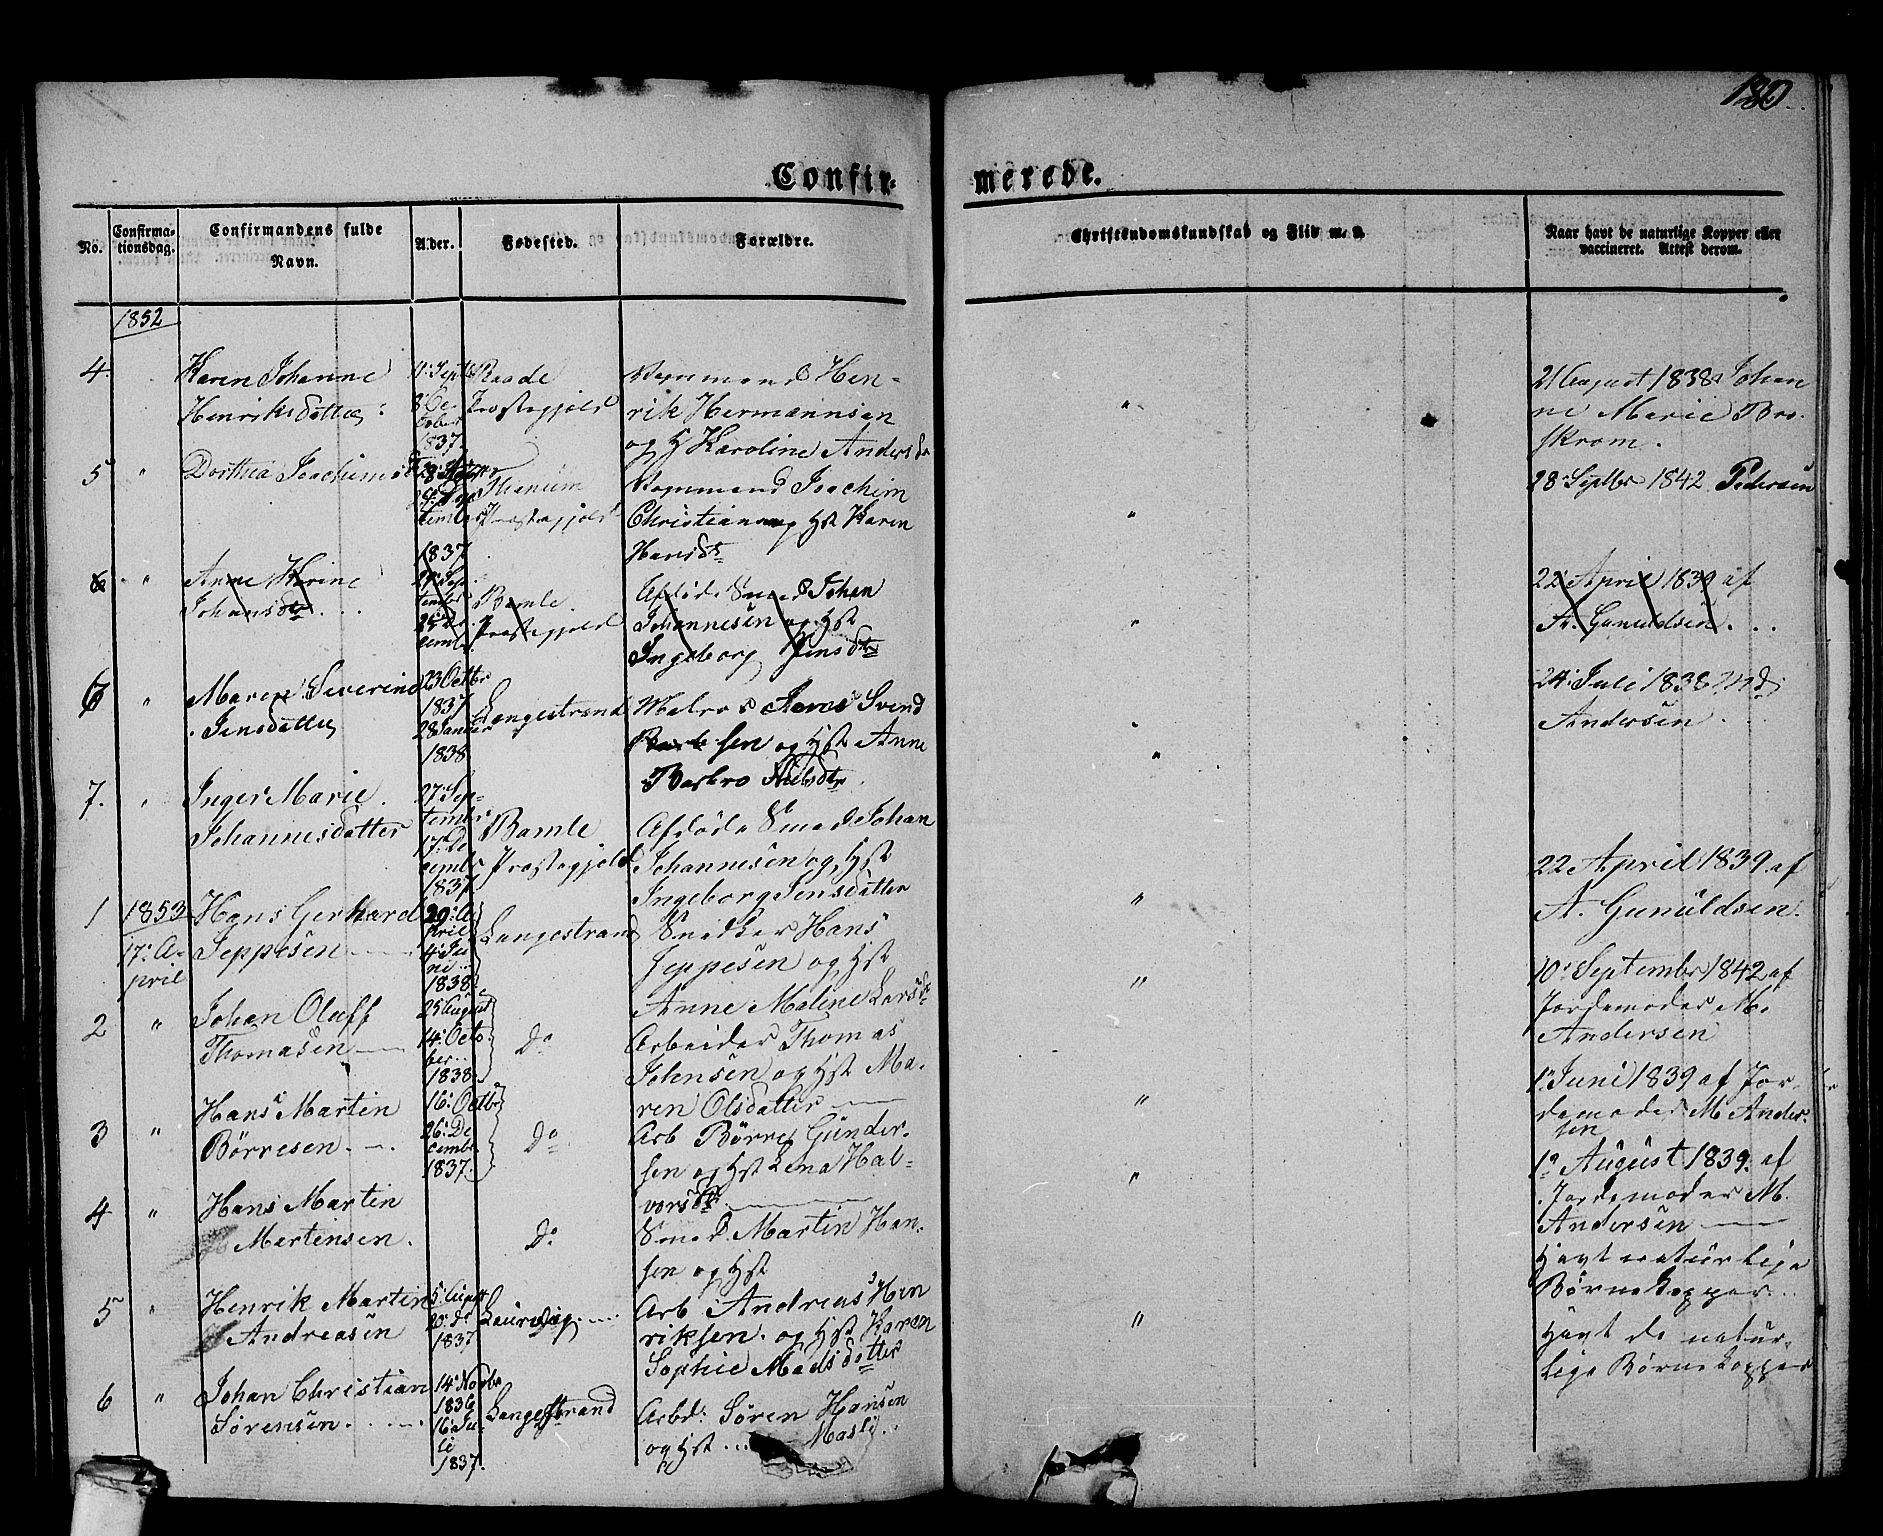 180
Confir-
merede.
No.
Confirma-
tionsdag.
Confirmandens fulde
Navn.
Alder.
Fødested.
Forældre.
Christendomskundskab og Flid m. v.
Naar havt de naturlige Kopper eller
vaccineret. Attest derom.
1852
4.
Karen Johanne
Henriksdatter
11 Septb
8 Oc-
tober
1837
Raade
Præstegjeld
Hen-
rik Hermannsen
og H Karoline Andersd
"
21 August 1838 Johan
ne Marie Bro-
strøm.
5
"
Dorthea Joachimsd
1837
Præstegjeld
Joachim
Christiansen og Hst Karen
Hansdtr
"
28 Septbr 1842 Pedersen
6
"
Anne Karine
Johansdtr
27 Sep-
tember
25 De-
cembr
Bamle
Præstegjeld
Afdøde Smed Johan
Johannesen og Hst
Ingeborg Jensdtr
"
22 April 1839 af
A. Gunuldsen
6
"
Maren Severine
Jensdatter
23 Octbr
1837
28 Januar
1838
Langestrand
Matros Jens Svend
sen og Hst Anne
Barbro Nielsdtr
"
24 Juli 1838 Md
Andersen
7.
"
Inger Marie
Johannesdatter
27 Sep-
tembr
17 De-
cembr
1837
Bamle
Præstegjeld
Afdøde Smed Johan
Johannesen og Hst
Ingeborg Jensdatter
"
22 April 1839 af
A. Gunuldsen.
1
1853
17: A-
pril
Hans Gerhard
Jeppesen
29: A-
pril
4: Ju-
ni
1838
Langestrand
Snedker Hans
Jeppesen og Hst
Anne Maline Larsd
"
10: September 1842 af
Jordemoder M.
Andersen
2
"
Johan Oluff
Thomasen
25 August
14: Octo-
ber
1838
Do
Arbeider Thomas
Johnsen og Hst Ma-
ren Olsdatter
"
1. Juni 1839 af Jor-
demoder M Ander-
sen
3
"
Hans Martin
Børresen
16: Octbr
26: De
cembr
1837
Do
Arb Børre Gunder-
sen og Hst Lena Hal-
vorsdtr
"
19 August 1839. af
Jordemoder M.
Andersen
4
"
Hans Martin
Martinsen.
Do
Smed Martin Han-
sen og Hst
Havt naturlige
Børnekopper
5
"
Henrik Martin
Andreasen
5 August
20: Do
1837
Laurvig
Arb Andreas Hen
riksen og Hst Karen
Sophie Madsdatter
"
Havt de natur-
lige Børnekopper
6
"
Johan Christian
Sørensen
14 Novbr
1836
16 Ju-
li
1837.
Langestrand
Arbd: Søren Hansen
og Hst